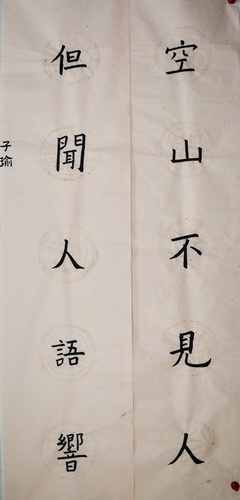 空山不見人
但聞人語響
子瑜